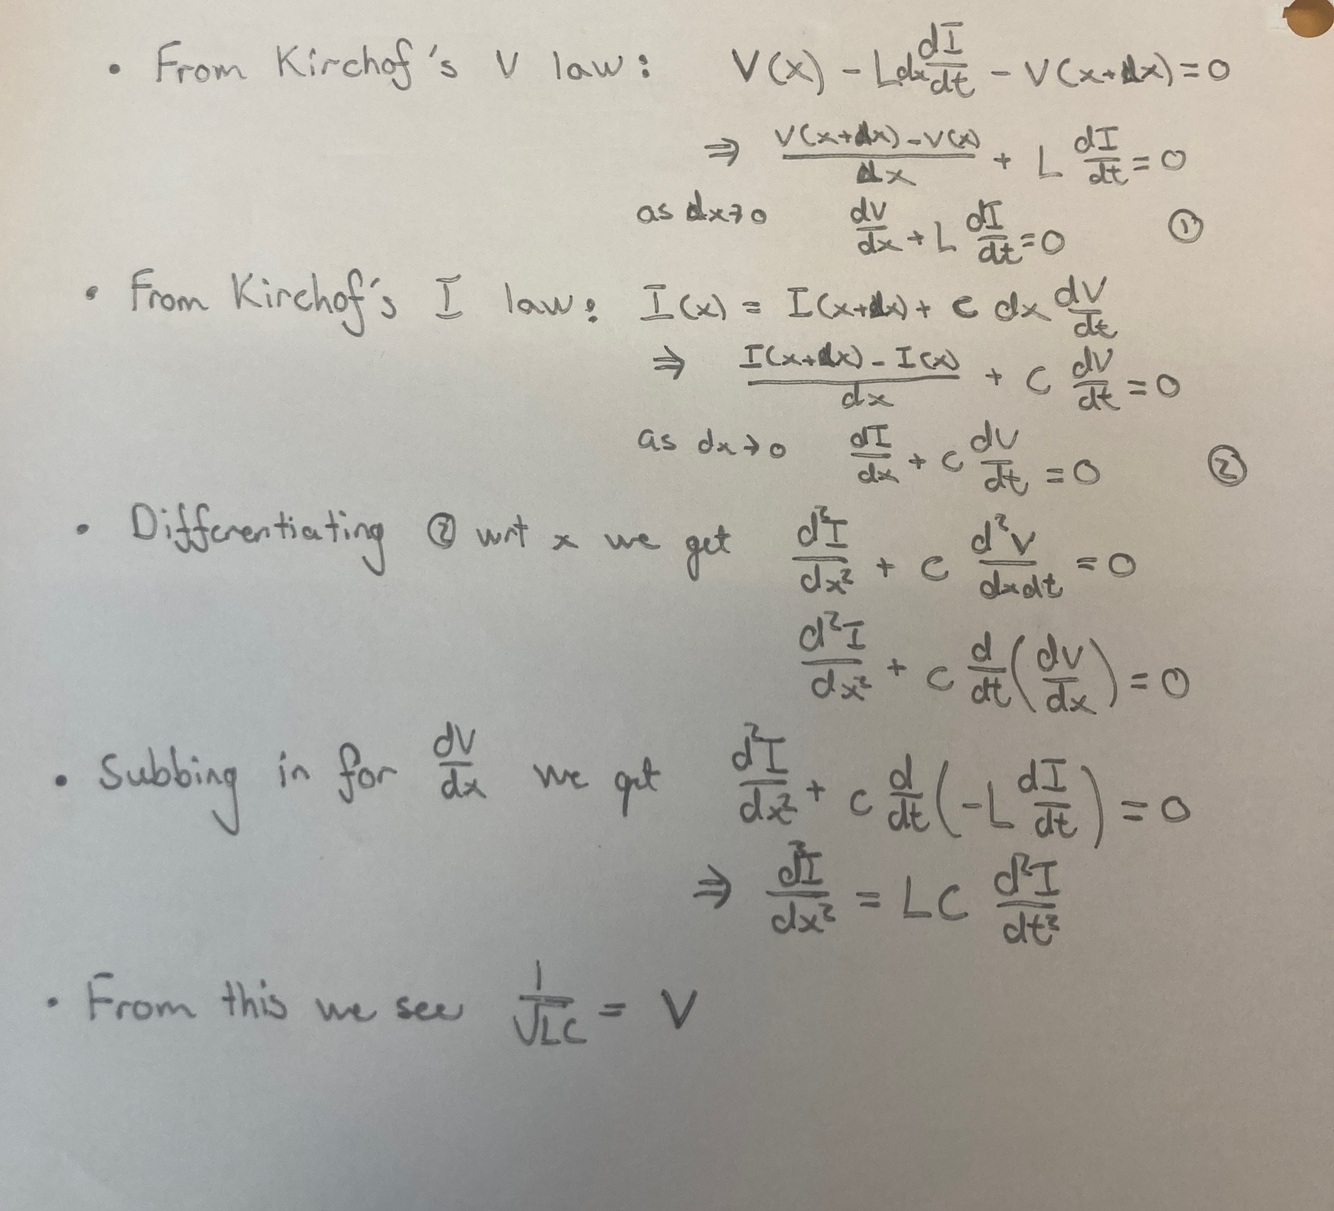 • From Kirchof's V law: V(x) - Ldx dI/dt - V(x+dx) = 0
⇒ (V(x+dx) - V(x))/dx + L dI/dt = 0
as dx→0 dV/dx + L dI/dt = 0 ①
• From Kirchof's I law: I(x) = I(x+dx) + C dx dV/dt
⇒ (I(x+dx) - I(x))/dx + C dV/dt = 0
as dx→0 dI/dx + C dV/dt = 0 ②
• Differentiating ② wrt x we get d²I/dx² + C d²V/dxdt = 0
d²I/dx² + C d/dt(dV/dx) = 0
• Subbing in for dV/dx we get d²I/dx² + C d/dt(-L dI/dt) = 0
⇒ d²I/dx² = LC d²I/dt²
• From this we see 1/√LC = V